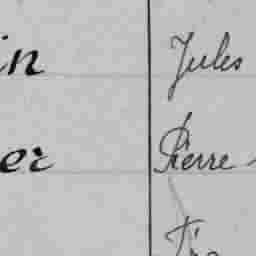 in Jules
er Pierre